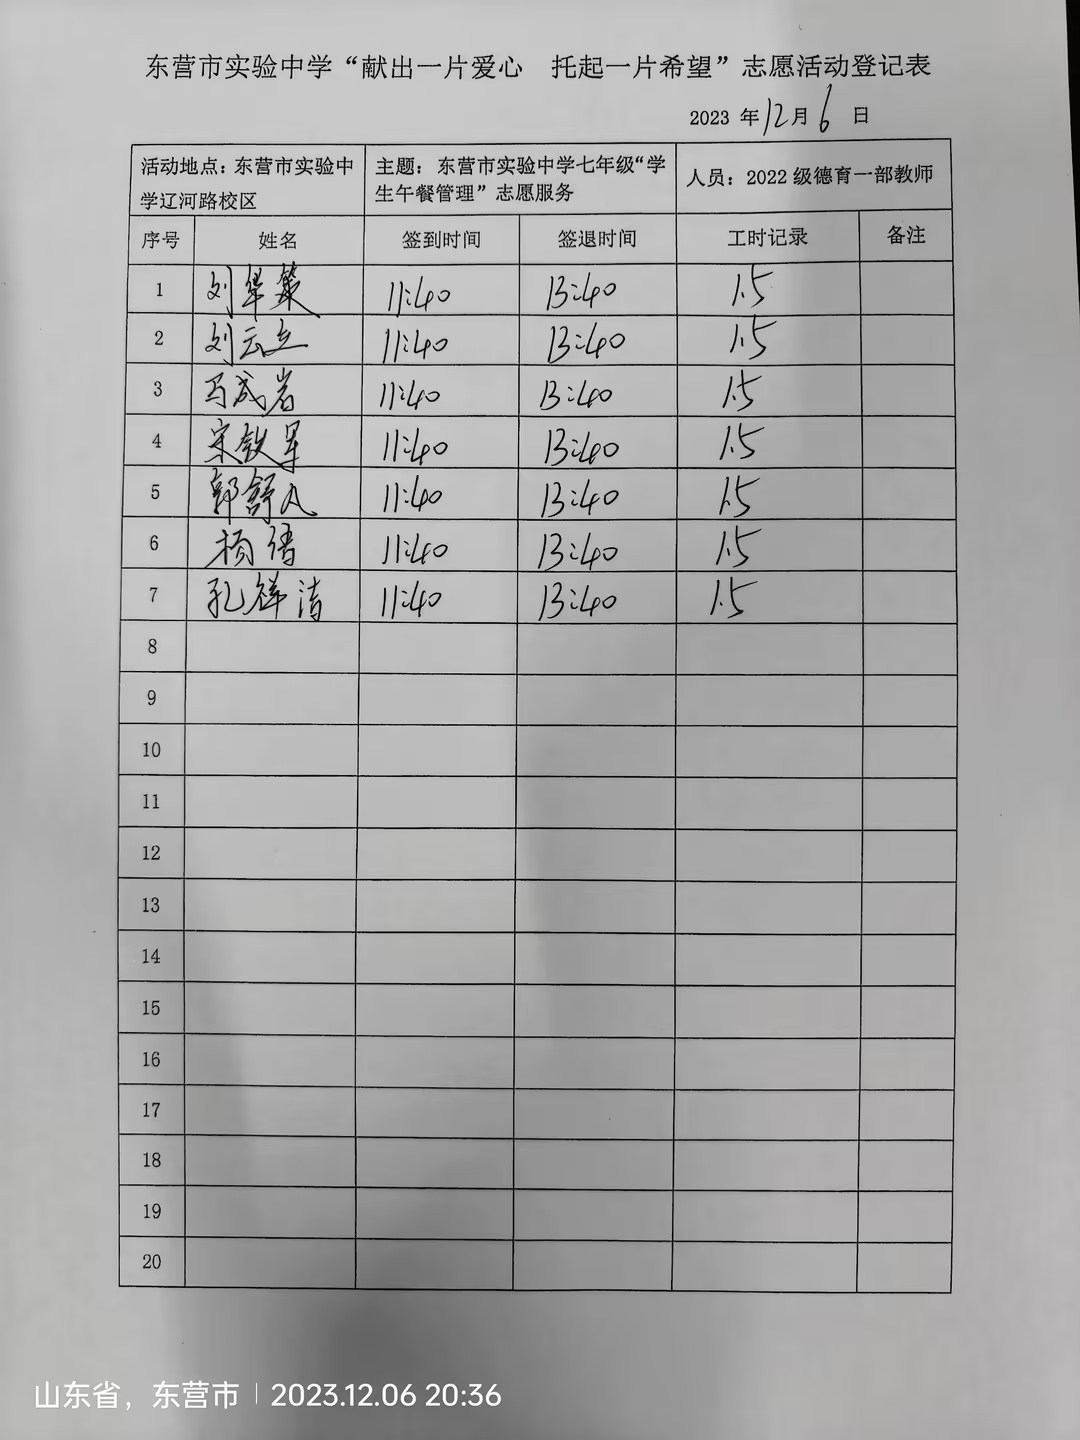 东营市实验中学“献出一片爱心 托起一片希望”志愿活动登记表
2023 年 12 月 6 日
活动地点：东营市实验中学辽河路校区 主题：东营市实验中学七年级“学生午餐管理”志愿服务 人员：2022 级德育一部教师
序号 姓名 签到时间 签退时间 工时记录 备注
1 刘 11:40 13:40 1.5
2 刘云立 11:40 13:40 1.5
3 马成岩 11:40 13:40 1.5
4 宋 军 11:40 13:40 1.5
5 郭舒凡 11:40 13:40 1.5
6 杨 11:40 13:40 1.5
7 孔祥洁 11:40 13:40 1.5
8
9
10
11
12
13
14
15
16
17
18
19
20
山东省，东营市 | 2023.12.06 20:36